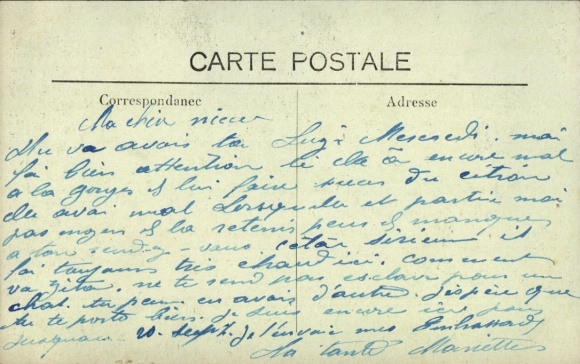 CARTE POSTALE
Correspondance
Adresse
Ma chèr niece
tu va avois ta Mescredi. mai
fai bien attention ci ele à encore mal
a la gorges & lui faire suces du citron
ele avai mal Lorsqu ela et partie mai
pas moyen & la retenir peur & manques
a ton rendez-vous cetai sérieux il
fai toujours très chaud ici. comment
va ne te rend pas esclave pour un
chat. tu peu en avois d'autre. j'espère que
tu te porte bien. je suis encore ici
jusquau 20. sept. je t'envoie mes Embrassades
Ta tante Mariette